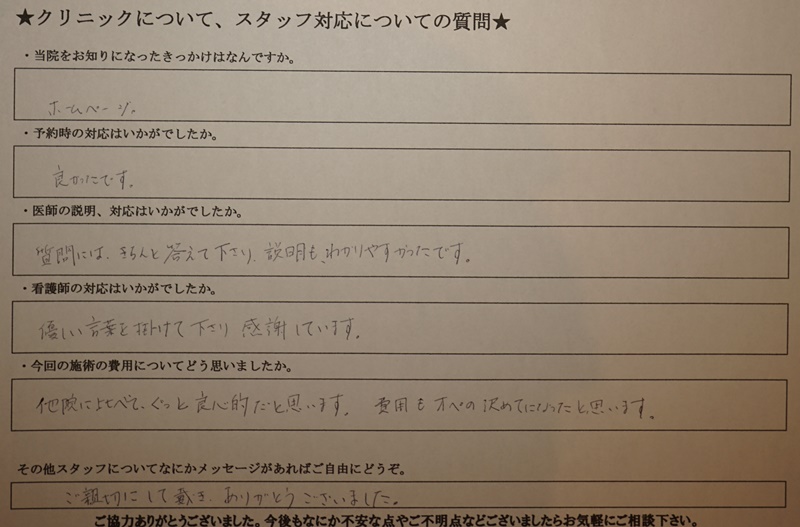 ★クリニックについて、スタッフ対応についての質問★
・当院をお知りになったきっかけはなんですか。
ホームページ。
・予約時の対応はいかがでしたか。
良かったです。
・医師の説明、対応はいかがでしたか。
質問には、きちんと答えて下さり、説明もわかりやすかったです。
・看護師の対応はいかがでしたか。
優しい言葉を掛けて下さり感謝しています。
・今回の施術の費用についてどう思いましたか。
他院に比べて、ぐっと良心的だと思います。費用もオペの決めてになったと思います。
その他スタッフについてなにかメッセージがあればご自由にどうぞ。
ご親切にして戴き、ありがとうございました。
ご協力ありがとうございました。今後もなにか不安な点やご不明点などございましたらお気軽にご相談下さい。